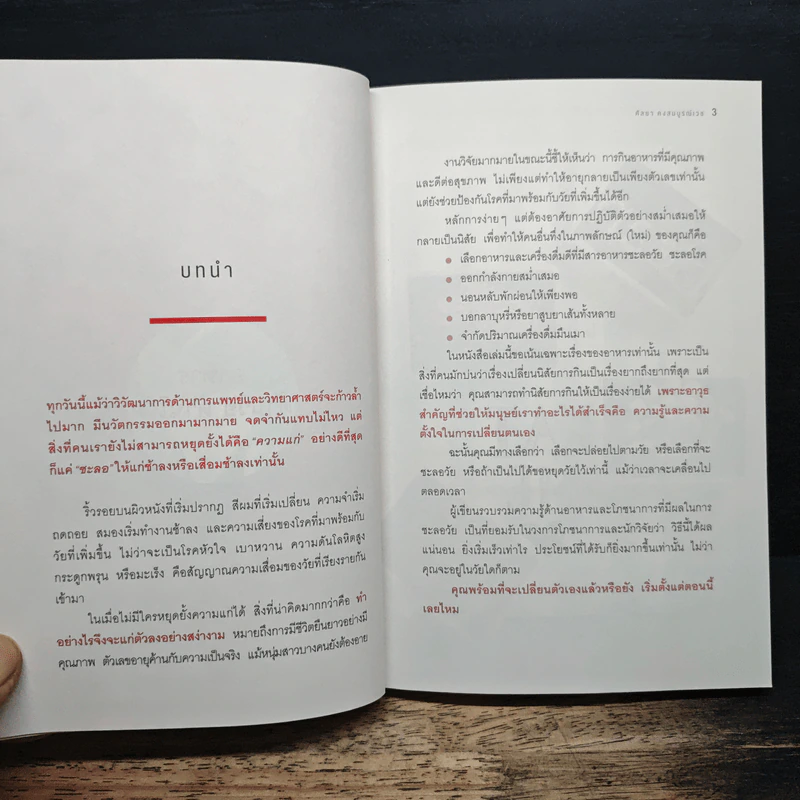 บทนำ
ทุกวันนี้แม้ว่าวิวัฒนาการด้านการแพทย์และวิทยาศาสตร์จะก้าวล้ำ
ไปมาก มีนวัตกรรมออกมามากมาย จดจำกันแทบไม่ไหว แต่
สิ่งที่คนเรายังไม่สามารถหยุดยั้งได้คือ “ความแก่” อย่างดีที่สุด
ก็แค่ “ชะลอ” ให้แก่ช้าลงหรือเสื่อมช้าลงเท่านั้น
ริ้วรอยบนผิวหนังที่เริ่มปรากฏ สีผมที่เริ่มเปลี่ยน ความจำเริ่ม
ถดถอย สมองเริ่มทำงานช้าลง และความเสี่ยงของโรคที่มาพร้อมกับ
วัยที่เพิ่มขึ้น ไม่ว่าจะเป็นโรคหัวใจ เบาหวาน ความดันโลหิตสูง
กระดูกพรุน หรือมะเร็ง คือสัญญาณความเสื่อมของวัยที่เรียงรายกัน
เข้ามา
ในเมื่อไม่มีใครหยุดยั้งความแก่ได้ สิ่งที่น่าคิดมากกว่าคือ ทำ
อย่างไรจึงจะแก่ตัวลงอย่างสง่างาม หมายถึงการมีชีวิตยืนยาวอย่างมี
คุณภาพ ตัวเลขอายุค้านกับความเป็นจริง แม้หนุ่มสาวบางคนยังต้องอาย
ศัลยา คงสมบูรณ์เวช 3
งานวิจัยมากมายในขณะนี้ชี้ให้เห็นว่า การกินอาหารที่มีคุณภาพ
และดีต่อสุขภาพ ไม่เพียงแต่ทำให้อายุกลายเป็นเพียงตัวเลขเท่านั้น
แต่ยังช่วยป้องกันโรคที่มาพร้อมกับวัยที่เพิ่มขึ้นได้อีก
หลักการง่ายๆ แต่ต้องอาศัยการปฏิบัติตัวอย่างสม่ำเสมอให้
กลายเป็นนิสัย เพื่อทำให้คนอื่นทึ่งในภาพลักษณ์ (ใหม่) ของคุณก็คือ
● เลือกอาหารและเครื่องดื่มดีที่มีสารอาหารชะลอวัย ชะลอโรค
● ออกกำลังกายสม่ำเสมอ
● นอนหลับพักผ่อนให้เพียงพอ
● บอกลาบุหรี่หรือยาสูบยาเส้นทั้งหลาย
● จำกัดปริมาณเครื่องดื่มมึนเมา
ในหนังสือเล่มนี้ขอเน้นเฉพาะเรื่องของอาหารเท่านั้น เพราะเป็น
สิ่งที่คนมักบ่นว่าเรื่องเปลี่ยนนิสัยการกินเป็นเรื่องยากถึงยากที่สุด แต่
เชื่อไหมว่า คุณสามารถทำนิสัยการกินให้เป็นเรื่องง่ายได้ เพราะอาวุธ
สำคัญที่ช่วยให้มนุษย์เราทำอะไรได้สำเร็จคือ ความรู้และความ
ตั้งใจในการเปลี่ยนตนเอง
ฉะนั้นคุณมีทางเลือกว่า เลือกจะปล่อยไปตามวัย หรือเลือกที่จะ
ชะลอวัย หรือถ้าเป็นไปได้ขอหยุดวัยไว้เท่านี้ แม้ว่าเวลาจะเคลื่อนไป
ตลอดเวลา
ผู้เขียนรวบรวมความรู้ด้านอาหารและโภชนาการที่มีผลในการ
ชะลอวัย เป็นที่ยอมรับในวงการโภชนาการและนักวิจัยว่า วิธีนี้ได้ผล
แน่นอน ยิ่งเริ่มเร็วเท่าไร ประโยชน์ที่ได้รับก็ยิ่งมากขึ้นเท่านั้น ไม่ว่า
คุณจะอยู่ในวัยใดก็ตาม
คุณพร้อมที่จะเปลี่ยนตัวเองแล้วหรือยัง เริ่มตั้งแต่ตอนนี้
เลยไหม